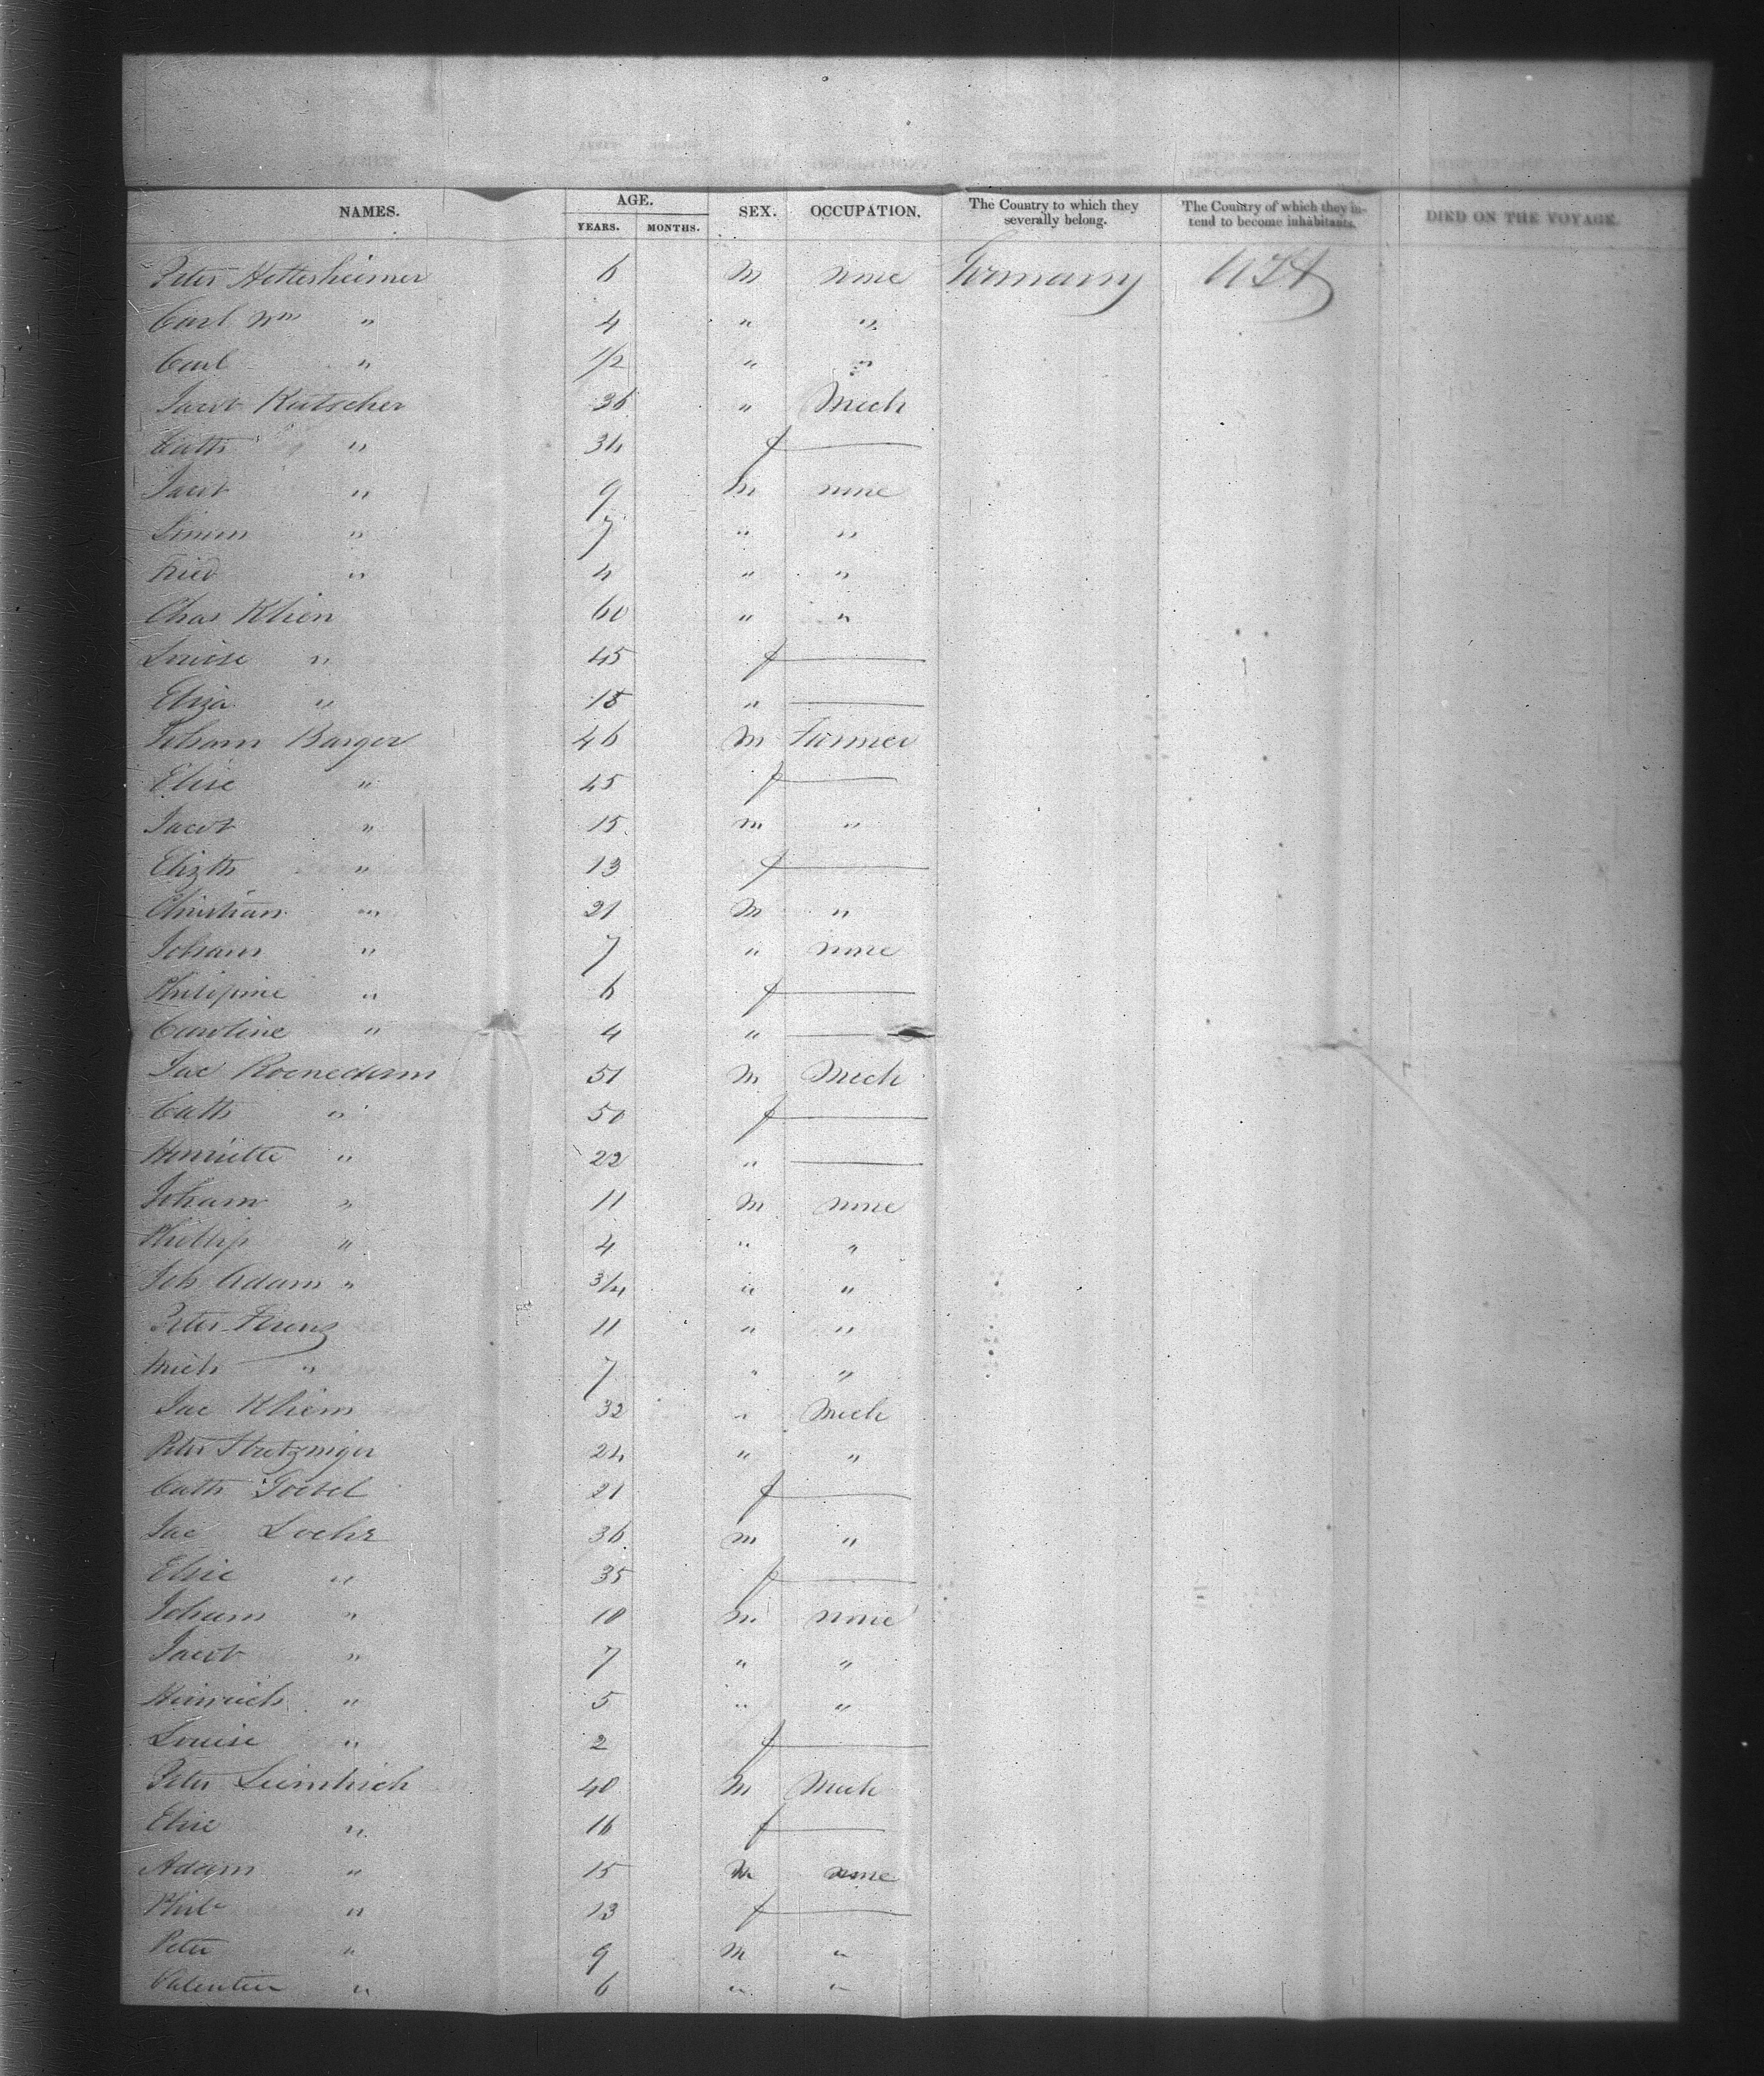 NAMES. AGE. SEX. OCCUPATION. The Country to which they severally belong. The Country of which they intend to become inhabitants. DIED ON THE VOYAGE.
YEARS. MONTHS.
Peter Hottesheimer 6 M none Germany USA
Carl Wm " 4 " "
Carl " 1/2 " "
Jacob Kutscher 36 " Mech
Cath " 34 f —
Jacob " 9 m none
Simon " 7 " "
Fried " 4 " "
Chas Klien 60 " "
Louise " 45 f —
Eliza " 18 " —
Joham Barger 46 M Farmer
Elise " 45 f —
Jacob " 15 m "
Elizth " 13 f —
Christian " 21 M "
Joham " 7 " none
Philipine " 6 f —
Caroline " 4 " —
Jac 51 M Mech
Cath " 50 f —
Henriette " 22 " —
Joham " 11 M none
Phillip " 4 " "
Joh Adam " 3/4 " "
Peter Ferenz 11 " "
Mich " 7 " "
Jac Khiem 32 " Mech
Peter Stretzniger 24 " "
Cath Goebel 21 f —
Jac Loehr 36 m "
Elsie " 35 f —
Joham " 10 m none
Jacob " 7 " "
Heinrich " 5 " "
Louise " 2 f —
Peter 40 M Mech
Elise " 16 f —
Adam " 15 M none
Phile " 13 f —
Peter " 9 M "
Valentin " 6 " "